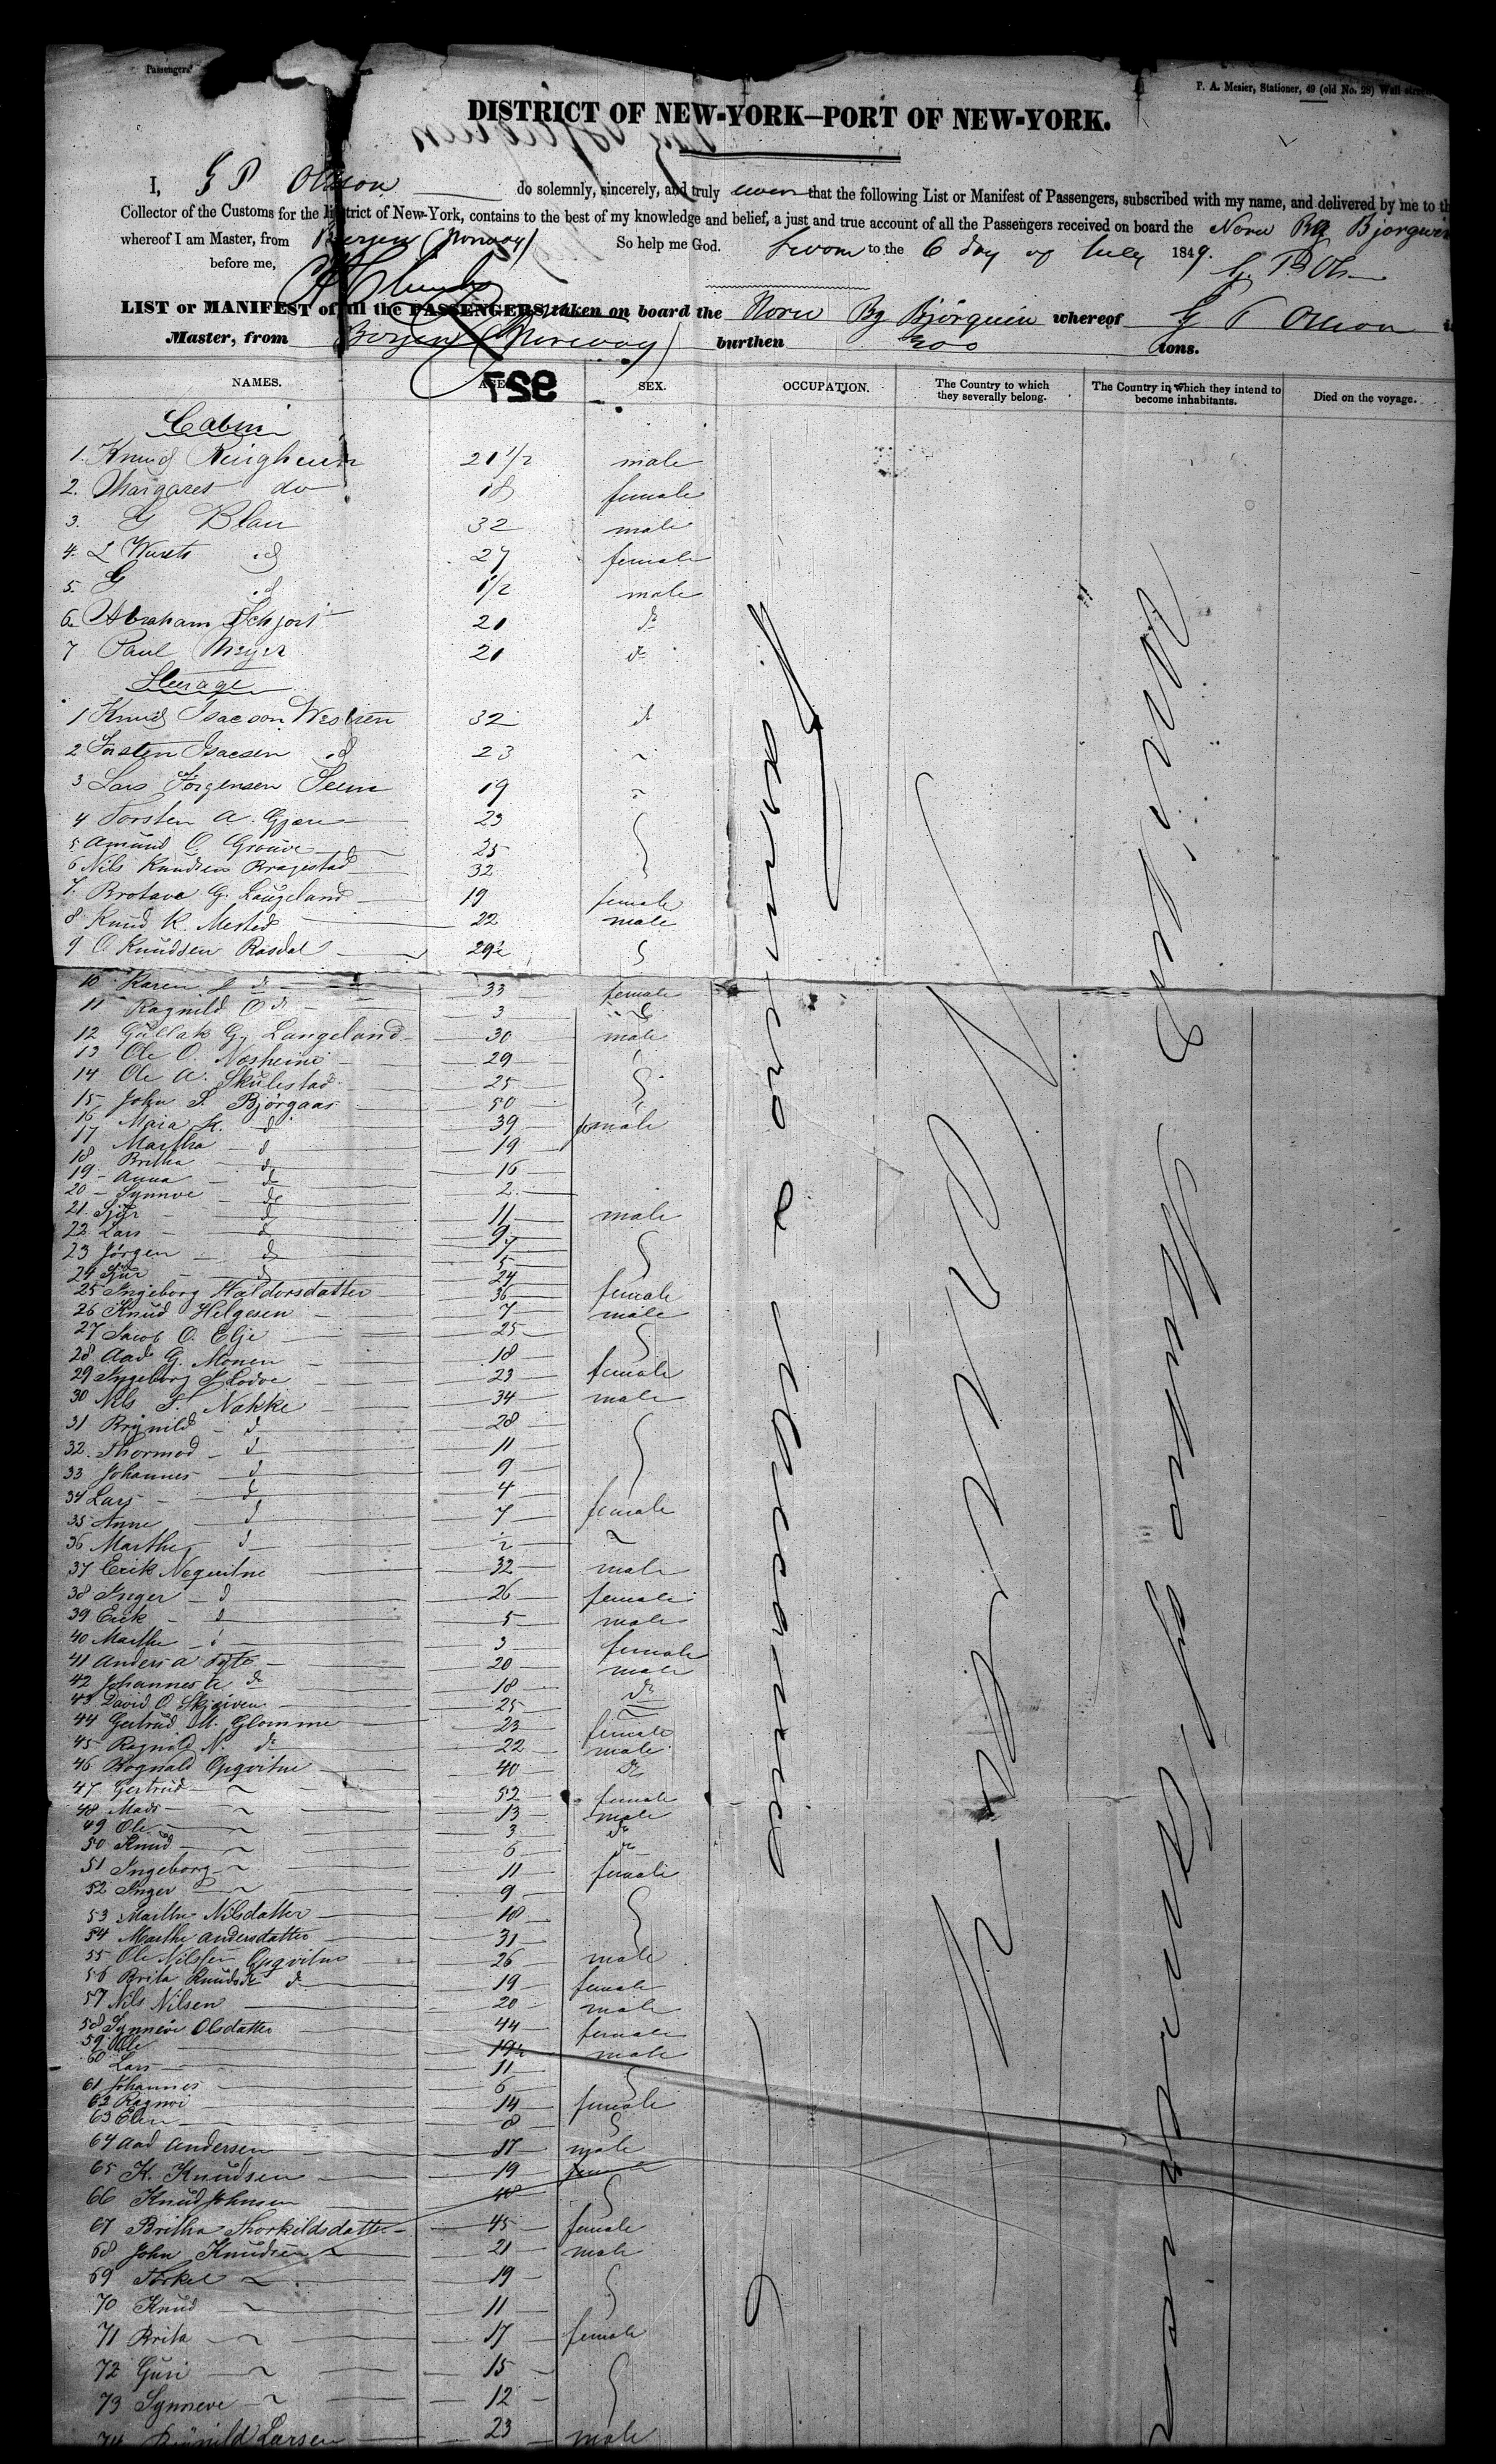 Passengers'
P. A. Mesier, Stationer, 49 (old No. 28) Wall street
DISTRICT OF NEW-YORK—PORT OF NEW-YORK.
I, G P Ollson do solemnly, sincerely, and truly swear that the following List or Manifest of Passengers, subscribed with my name, and delivered by me to the
Collector of the Customs for the District of New-York, contains to the best of my knowledge and belief, a just and true account of all the Passengers received on board the Norw Bg Bjorgvin
whereof I am Master, from Bergen (Norway) So help me God. Sworn to the 6 day of July 1849. G. P. Ols
before me,
LIST or MANIFEST of all the PASSENGERS taken on board the Norw Bg Bjorgvin whereof G P Ollson is
Master, from Bergen (Norway) burthen 300 tons.
NAMES. AGE SEX. OCCUPATION. The Country to which they severally belong. The Country in which they intend to become inhabitants. Died on the voyage.
527
Cabin
1. Knud Ringheim 21 1/2 male
2. Margaret do 18 female
3. G Blau 32 male
4. L Wurts d 27 female
5. G d 1/2 male
6. Abraham Schjort 21 do
7 Paul Meyer 21 do
Steerage
1 Knud Isacson Westren 32 do
2 Torsten Isacsen d 23 ~
3 Lars Jorgensen Seim 19 ~
4 Torsten A. Gjere 23
5 Amund O. Grouve 25
6 Nils Knudsen Bragestad 32
7. Brotava G. Laugeland 19 female
8 Knud K. Mested 22 male
9 O Knudsen Rasdal 29½
10 Karen d 33 female
11 Ragnild O d 3
12 Gullak G. Langeland 30 male
13 Ole O. Nesheim 29
14 Ole A. Skulestad 25
15 John S. Bjørgaas 50
16 Maia K. d 39 female
17 Martha d 19
18 Britha d 16
19 Anna d 2
20 Synnve d
21. Sjur d 11 male
22 Lars d 9
23 Jørgen d 7
24 Sjur d 5
25 Ingeborg Haldorsdatter 24 female
26 Knud Helgesen 36 male
27 Jacob O. Elje 25
28 Aad G. Monen 18
29 Ingeborg Flodve 23 female
30 Nils S. Nakke 34 male
31 Brynild d 28
32. Thormod d 11
33 Johannes d 9
34 Lars d 4
35 Anne d 7 female
36 Marthe d ½ ~
37 Erik Nequitne 32 male
38 Inger d 26 female
39 Erik d 5 male
40 Marthe d 3 female
41 Anders A Tyte 20 male
42 Johannes A d 18 do
43 David O Skjerven 25
44 Gertrud M. Glomme 23 female
45 Ragnild N. do 22 male
46 Rognald Opqvitne 40 do
47 Gertrud ~ 52 female
48 Mads ~ 13 male
49 Ole ~ 3 do
50 Knud ~ 6 do
51 Ingeborg ~ 11 female
52 Inger ~ 9
53 Marthe Nilsdatter 18
54 Marthe Andersdatter 31
55 Ole Nilsen Opqvitne 26 male
56 Brita Knudsdr d 19 female
57 Nils Nilsen 20 male
58 Synneve Olsdatter 44 female
59 Ole 19½ male
60 Lars 11
61 Johannes 6
62 Ragnvi 14 female
63 Elen 8
64 Aad Andersen 17 male
65 K. Knudsen 19
66 Knud Johnsen 48
67 Britha Thorkildsdatter 45 female
68 John Knudsen 21 male
69 Torkel ~ 19
70 Knud ~ 11
71 Brita ~ 17 female
72 Guri ~ 15
73 Synneve ~ 12
74 Brynild Larsen 23 male
Norway
United States of America